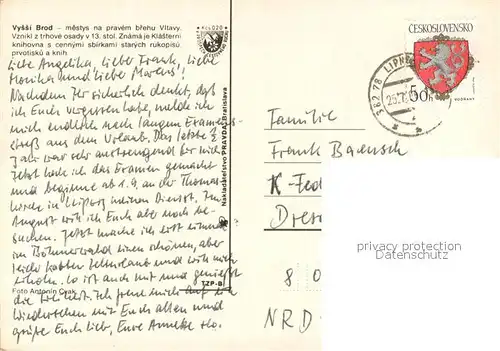 Vyšší Brod – městys na pravém břehu Vltavy.
Vznikl z trhové osady v 13. stol. Známá je Klášterní
knihovna s cennými sbírkami starých rukopisů
prvotisků a knih.
Liebe Angelika, lieber Frank, liebe
Monika und lieber Marcus!
Nachdem Ihr sicherlich denkt, daß
ich Euch vergessen habe, melde ich
mich endlich nach langem Examens-
streß aus dem Urlaub. Das letzte ½
Jahr war sehr anstrengend für mich.
Jetzt habe ich das Examen gemacht
und beginne ab 1.9. an der Thomas-
kirche in Leipzig meinen Dienst. Im
August will ich Euch aber noch be-
suchen. Jetzt mache ich erst einmal
im Böhmerwald einen schönen, aber
leider kalten Zelturlaub und will mich
erholen. So ist auch mit und genießt
die Freiheit. Ich freue mich auf ein
Wiedersehen mit Euch allen und
grüße Euch lieb, Eure Anneke
Foto Antonín Cvak
TZP-B
Nakladateľstvo PRAVDA Bratislava
ČESKOSLOVENSKO
50h
VODŇANY
382 78 LIPNO
Familie
Frank Baensch
K-Fed
Dresd
8 0
NRD
privacy protection
Datenschutz